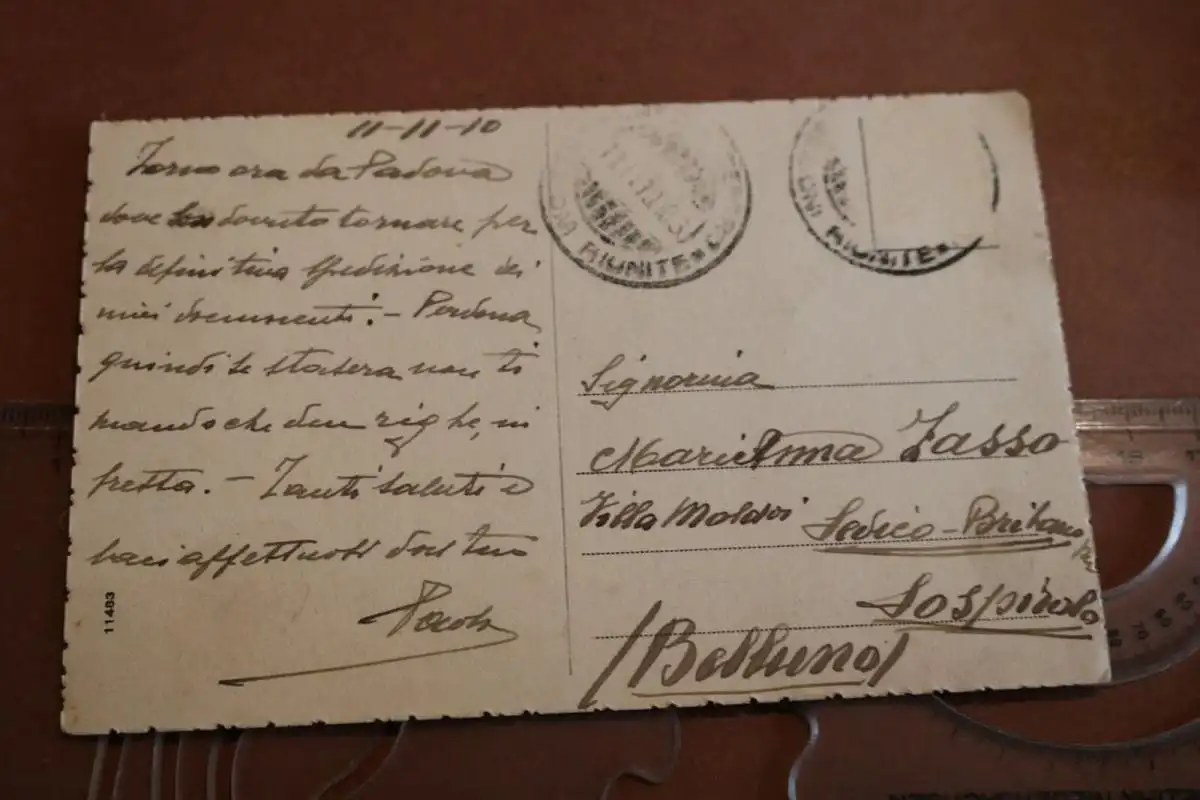 11-11-10
Torno ora da Padova
dove ho dovuto tornare per
la definitiva spedizione dei
miei documenti. - Perdona
quindi se stasera non ti
mando che due righe, in
fretta. - Tanti saluti e
baci affettuosi dal tuo
Paolo
11483
RIUNITE
RIUNITE
Signorina
Mariaanna Zasso
Villa Moldoi Sedico-Bribano
Sospirolo
(Belluno)